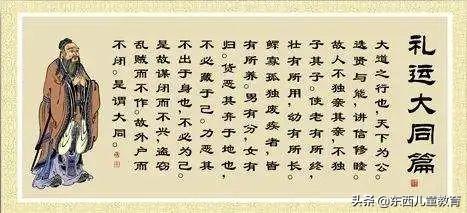 礼运大同篇
大道之行也，天下为公。
选贤与能，讲信修睦。
故人不独亲其亲，不独
子其子。使老有所终，
壮有所用，幼有所长。
鳏寡孤独废疾者，皆
有所养。男有分，女有
归。货恶其弃于地也，
不必藏于己。力恶其
不出于身也，不必为己。
是故谋闭而不兴，盗窃
乱贼而不作。故外户而
不闭。是谓大同。
头条 @东西儿童教育